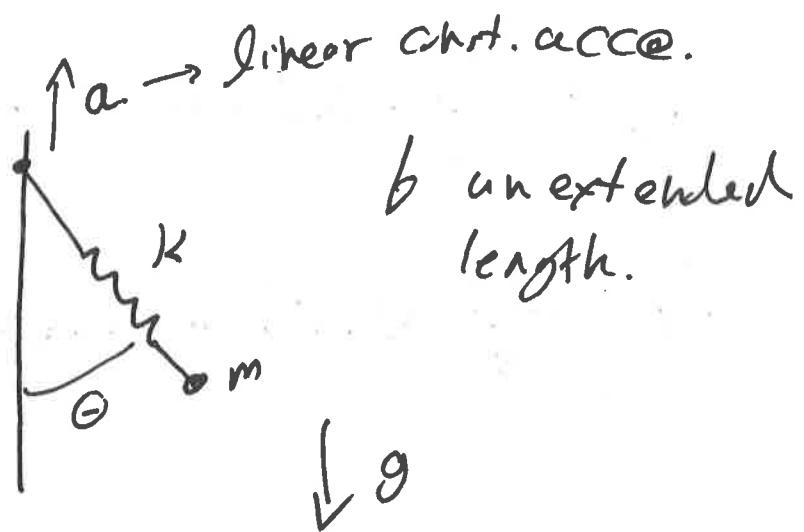 a → linear const. acce.
b unextended
length.
k
m
θ
g